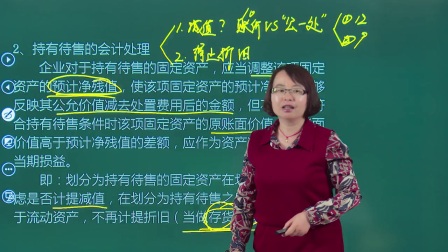 1. 减值? 账价 VS "公一处"
① 12
②
2. 停止折旧
2、持有待售的会计处理
企业对于持有待售的固定资产,应当调整该项固定
资产的预计净残值,使该项
反映其公允价值减去处置费用后的金额,但不
合持有待售条件时该项固定资产的原账面价
价值高于预计净残值的差额,应作为资产
当期损益。
即:划分为持有待售的固定资产在
虑是否计提减值,在划分为持有待售之
于流动资产,不再计提折旧(当做存货